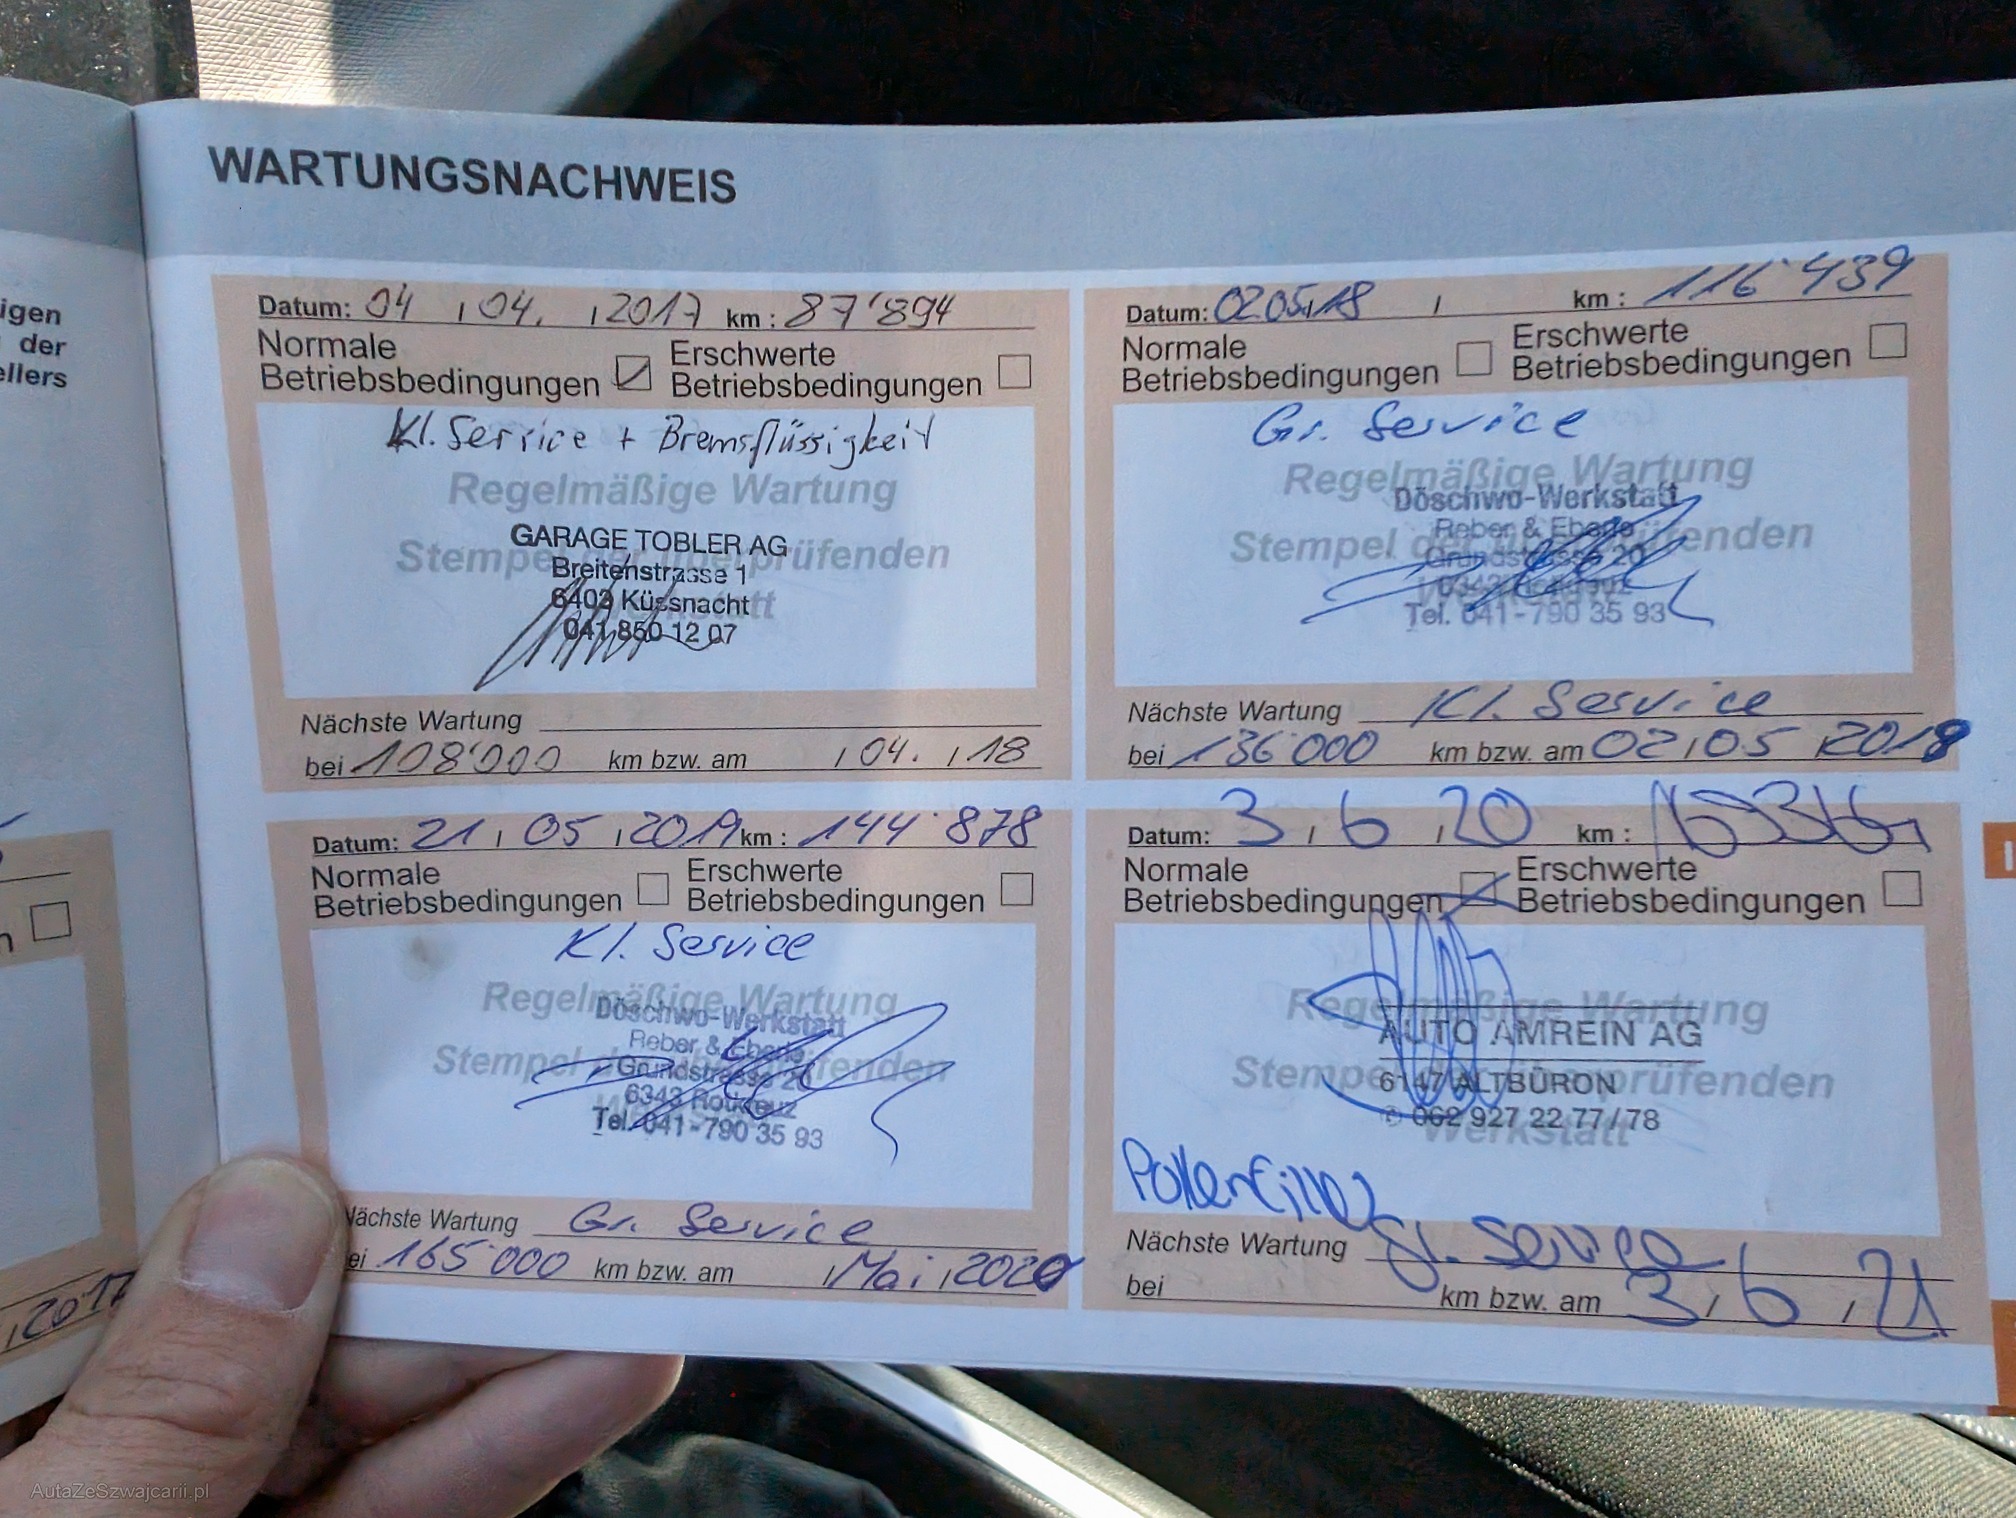 igen
der
ellers
WARTUNGSNACHWEIS
Datum: 04 , 04. , 2017 km : 87'894
Normale
Betriebsbedingungen
Erschwerte
Betriebsbedingungen
Kl. Service + Bremsflüssigkeit
Regelmäßige Wartung
Stempel der überprüfenden
Werkstatt
GARAGE TOBLER AG
Breitenstrasse 1
6403 Küssnacht
041 850 12 07
Nächste Wartung
bei 108'000 km bzw. am , 04. , 18
Datum: 02.05.18 , km : 116'439
Normale
Betriebsbedingungen
Erschwerte
Betriebsbedingungen
Gr. Service
Regelmäßige Wartung
Stempel der überprüfenden
Döschwo-Werkstatt
Reber & Eberle
Grundstrasse 20
6343 Rotkreuz
Tel. 041-790 35 93
Nächste Wartung Kl. Service
bei 136'000 km bzw. am 02 , 05 2019
Datum: 21 , 05 , 2019 km : 144'878
Normale
Betriebsbedingungen
Erschwerte
Betriebsbedingungen
Kl. Service
Regelmäßige Wartung
Stempel der überprüfenden
Döschwo-Werkstatt
Reber & Eberle
Grundstrasse 20
6343 Rotkreuz
Tel. 041-790 35 93
Nächste Wartung Gr. Service
bei 165'000 km bzw. am , Mai , 2020
Datum: 3 , 6 , 20 km :
Normale
Betriebsbedingungen
Erschwerte
Betriebsbedingungen
Regelmäßige Wartung
Stempel der überprüfenden
Werkstatt
AUTO AMREIN AG
6147 ALTBÜRON
✆ 062 927 22 77/78
Pollenfilter
Nächste Wartung gr. Service
bei km bzw. am 3 , 6 , 21
, 2017
AutaZeSzwajcarii.pl